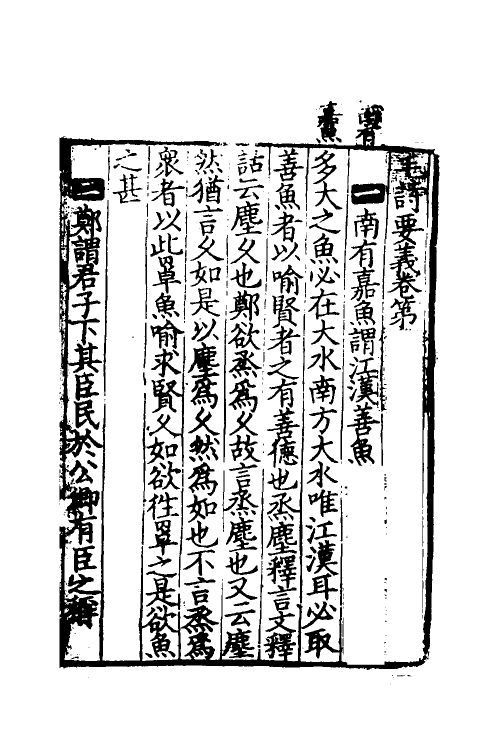 南有
嘉魚
毛詩要義卷第
一 南有嘉魚謂江漢善魚
多大之魚必在大水南方大水唯江漢耳必取
善魚者以喻賢者之有善德也烝塵釋言文釋
詁云塵久也鄭欲烝爲久故言烝塵也又云塵
然猶言久如是以塵爲久然爲如也不言烝爲
衆者以此罩魚喻求賢久如欲往罩之是欲魚
之甚
二 鄭謂君子下其臣民於公卿有臣之稱